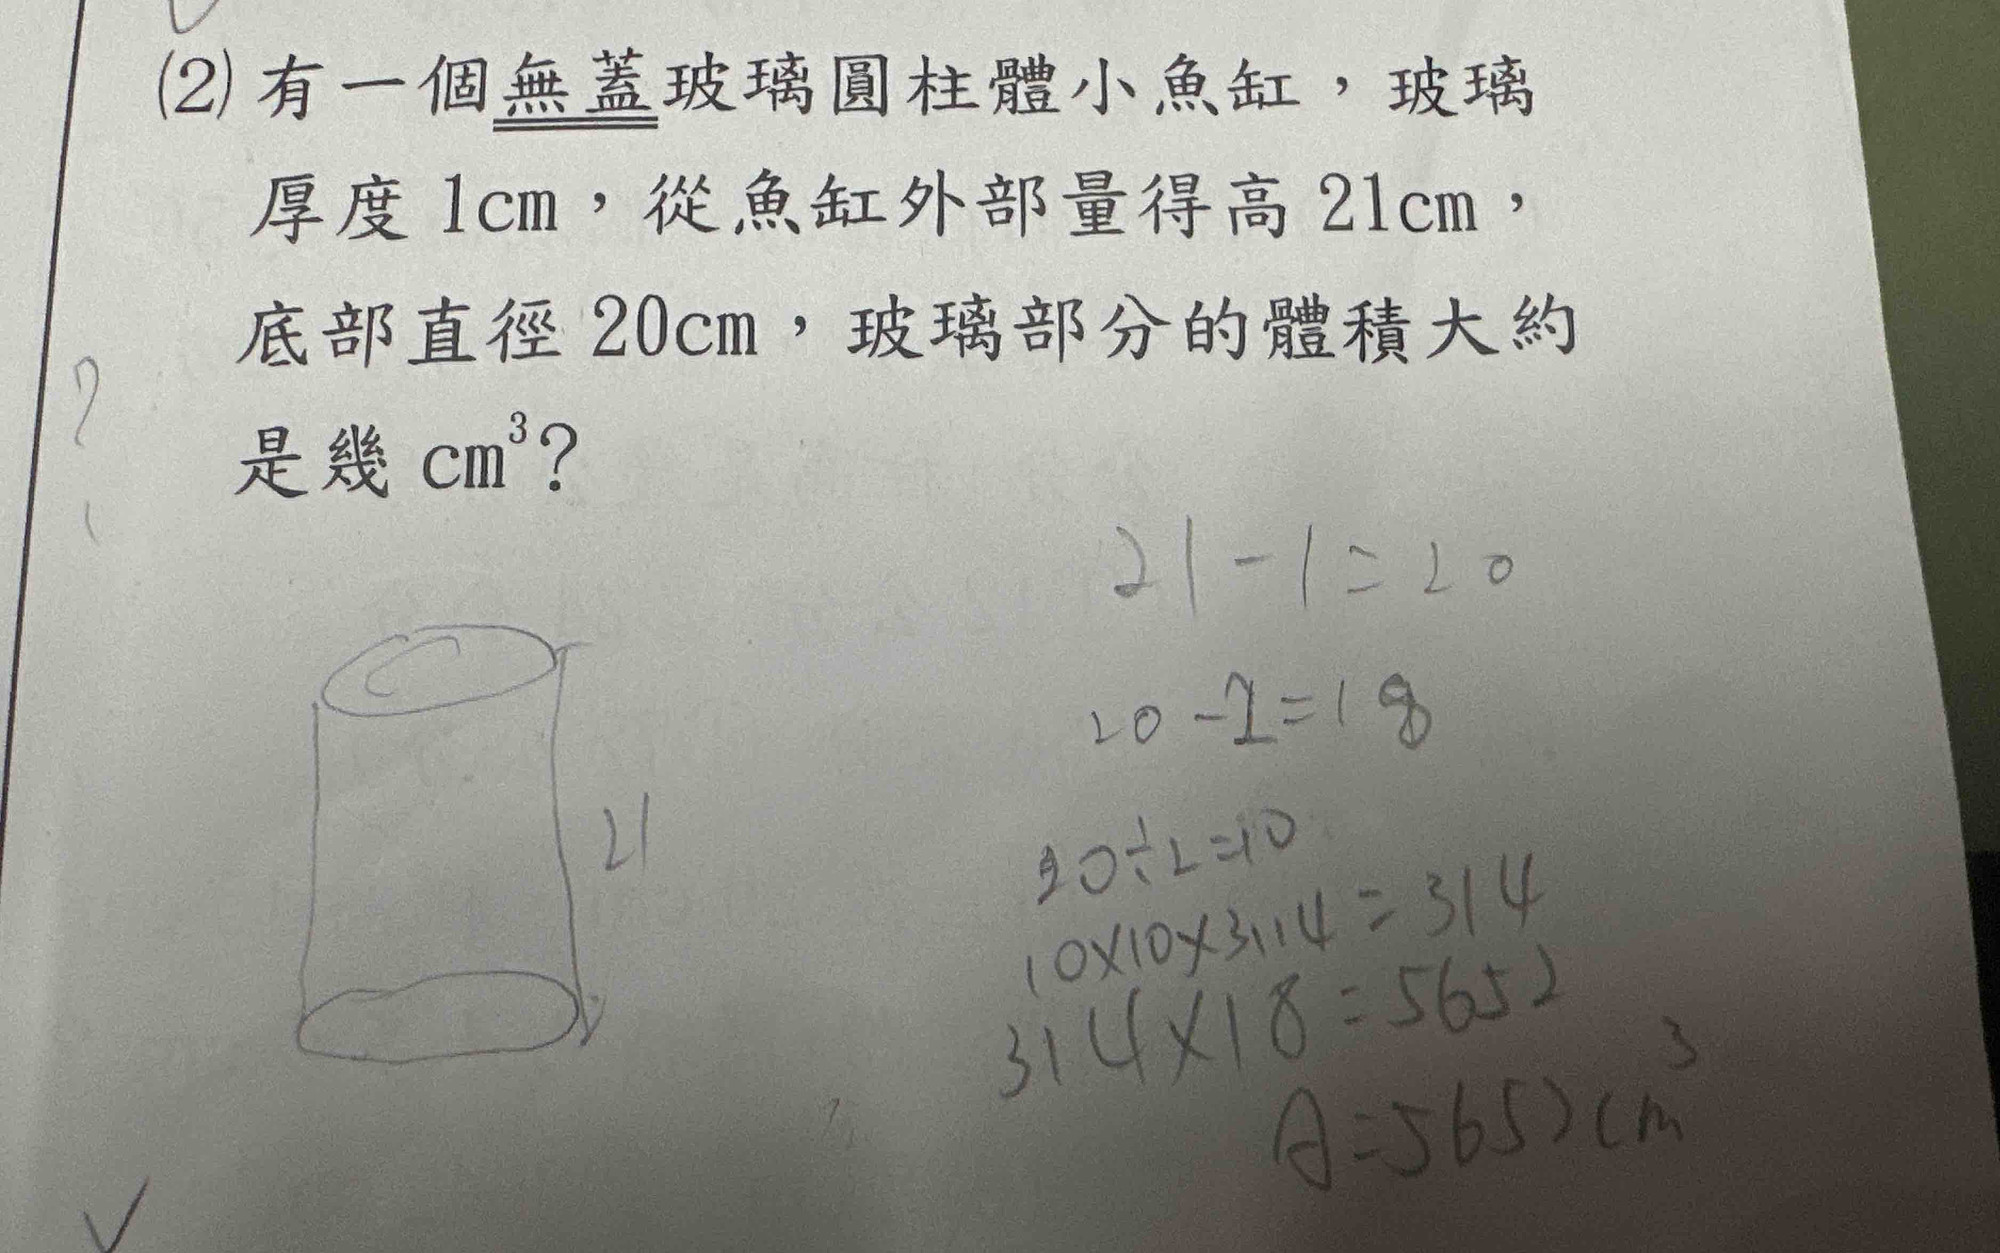 (2) 有一個無蓋玻璃圓柱體小魚缸，玻璃
厚度 1cm，從魚缸外部量得高 21cm，
底部直徑 20cm，玻璃部分的體積大約
是幾 cm³？
?
21-1=20
20-2=18
21
20÷2=10
10×10×3.14=314
314×18=5652
A=5652cm³